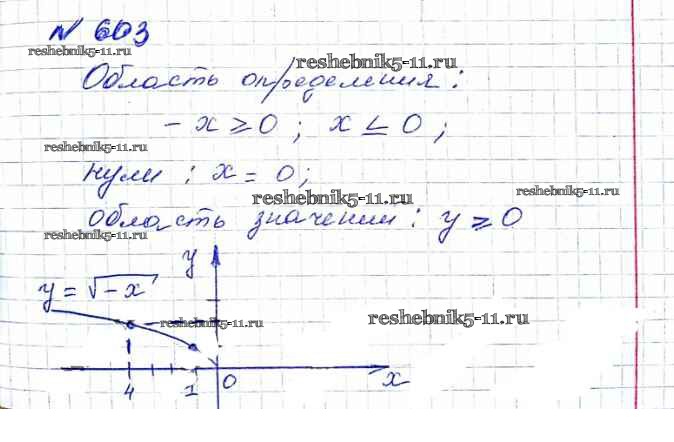 № 603
reshebnik5-11.ru
reshebnik5-11.ru
Область определения:
-x ≥ 0; x ≤ 0;
reshebnik5-11.ru
нули: x = 0;
reshebnik5-11.ru
reshebnik5-11.ru
область значений: y ≥ 0
reshebnik5-11.ru
y
y = √-x
reshebnik5-11.ru
reshebnik5-11.ru
4 1 0 x